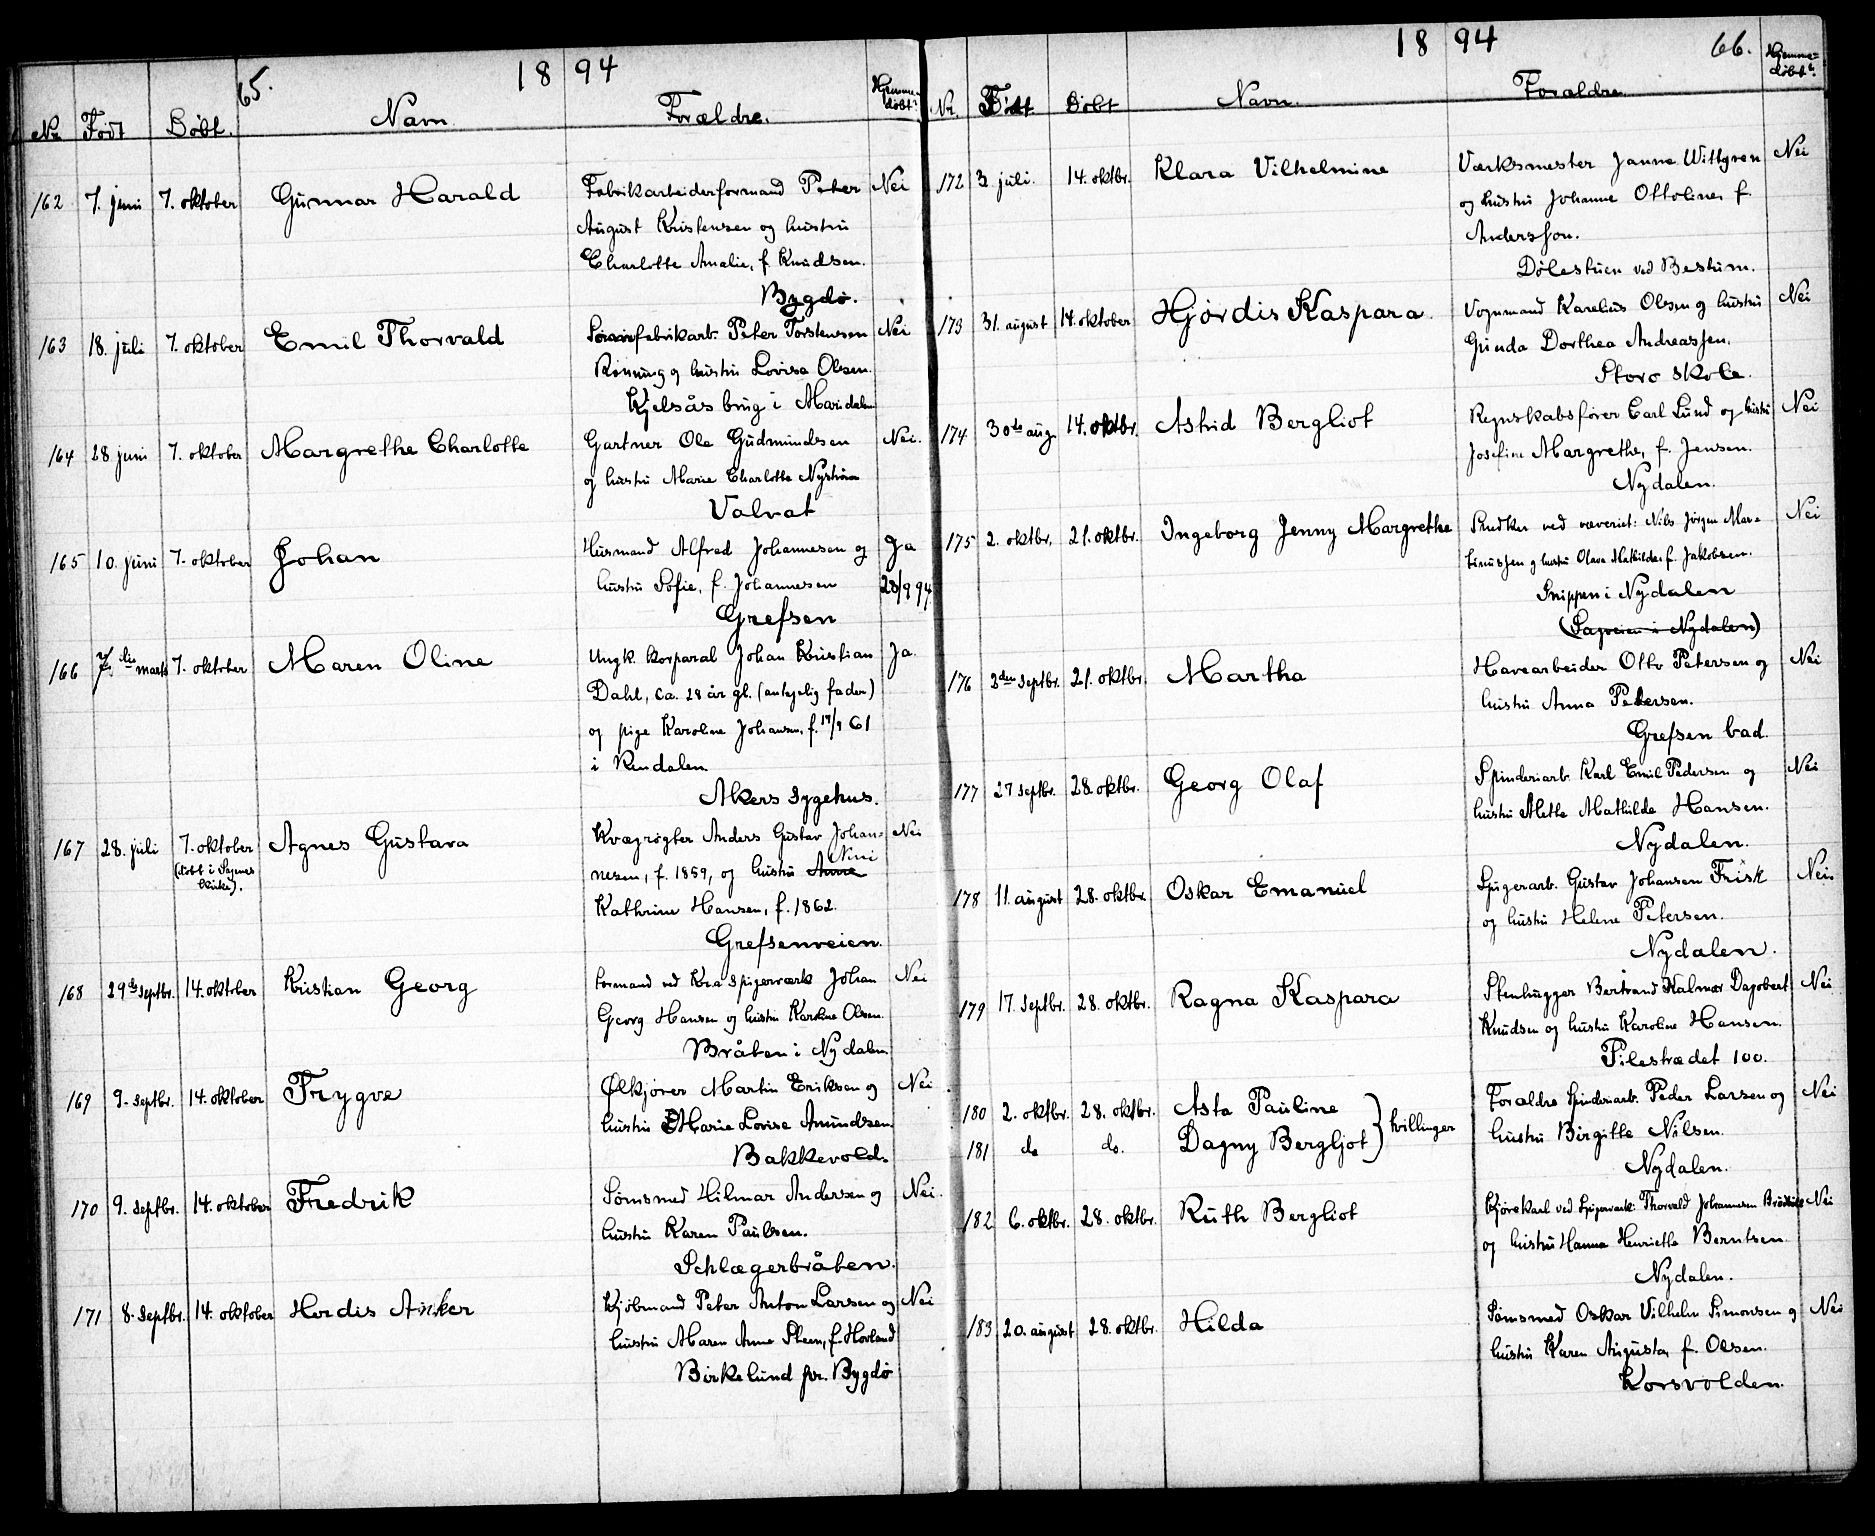 65.
18 94
Nr. Født Døbt. Navn. Forældre. Hjemmedøbt?
162 7. juni 7. oktober Gunnar Harald Fabrikarbeiderformand Peter Nei
August Kristensen og hustru
Charlotte Amalie, f. Knudsen.
Bygdø.
163 18. juli 7. oktober Emil Thorvald Peter Torstensen Nei
Rønning og hustru Lovise Olsen.
Kjelsås brug i Maridalen
164 28 juni 7. oktober Margrethe Charlotte Gartner Ole Gudmundsen Nei.
og hustru Marie Charlotte Nystrøm
Valvat
165 10. juni 7. oktober Johan Husmand Alfred Johannesen og Ja
hustru Sofie, f. Johannesen 28/9 94.
Grefsen
166 marts 7. oktober Maren Oline Ungk. korporal Johan Kristian Ja.
Dahl, ca. 28 år gl. (antagelig fader)
og pige Karoline Johansen, f. 61
i Rendalen.
Akers sygehus.
167 28. juli 7. oktober Agnes Gustava Kvægrøgter Anders Gustav Johan= Nei
(døbt i Sagenes kirke).
nesen, f. 1859, og hustru Anna
Kathrine Hansen, f. 1862.
Grefsenveien.
168 29de septbr. 14. oktober Kristian Georg Formand ved Kra spigerværk Johan Nei
Georg Hansen og hustru Karoline Olsen.
Bråten i Nydalen.
169 9. septbr. 14. oktober Trygve Ølkjører Martin Eriksen og Nei
hustru Marie Lovise Amundsen
Bakkevold.
170 9. septbr. 14. oktober Fredrik Sømsmed Hilmar Andersen og Nei.
hustru Karen Paulsen.
Schlægerbråten.
171 8. septbr. 14. oktober Herdis Anker Kjøbmand Peter Anton Larsen og Nei
hustru Maren Anne Steen, f. Hovland
Birkelund pr. Bygdø
18 94
66.
Nr. Født. Døbt Navn. Forældre. Hjemme=døbt?
172 3 juli. 14. oktbr. Klara Vilhelmine Værksmester Janne Wittgren Nei
og hustru Johanne Ottoline, f.
Andersson.
Dølestuen ved Bestum.
173 31. august 14. oktober Hjørdis Kaspara. Vognmand Karelius Olsen og hustru Nei
Ginda Dorthea Andreassen.
Storo skole.
174 30te aug. 14. oktbr. Astrid Bergliot Regnskabsfører Carl Lund og hustru Nei
Josefine Margrethe, f. Jensen.
Nydalen.
175 2. oktbr. 21. oktbr. Ingeborg Jenny Margrethe Snedker ved væveriet: Nils Jørgen Mar= Nei
tinussen og hustru Olava Mathilde, f. Jakobsen.
Snippen i Nydalen
(Sagveien i Nydalen)
176 3den septbr. 21. oktbr. Martha Havearbeider Otto Petersen og Nei
hustru Anna Petersen.
Grefsen bad.
177 27 septbr. 28. oktbr. Georg Olaf Spinderiarb. Karl Emil Pedersen og Nei
hustru Alette Mathilde Hansen.
Nydalen.
178 11. august 28. oktbr. Oskar Emanuel Spigerarb. Gustav Johansen Frisk Nei.
og hustru Helene Petersen.
Nydalen.
179 17. septbr. 28. oktbr. Ragna Kaspara Stenhugger Bertrand Kalmar Dagobert Nei
Knudsen og hustru Karoline Hansen.
Pilestrædet 100.
180 2. oktbr. 28. oktbr. Asta Pauline } tvillinger Forældre Spinderiarb. Peder Larsen og Nei
181 do do. Dagny Bergljot hustru Birgitte Nilsen.
Nydalen.
182 6. oktbr. 28. oktbr. Ruth Bergliot Kjørekarl ved Spigerværk: Thorvald Johannesen Nei
og hustru Hanna Henriette Berntsen.
Nydalen.
183 20. august 28. oktbr. Hilda Sømsmed Oskar Vilhelm Simonsen og Nei
hustru Karen Augusta, f. Olsen.
Korsvolden.